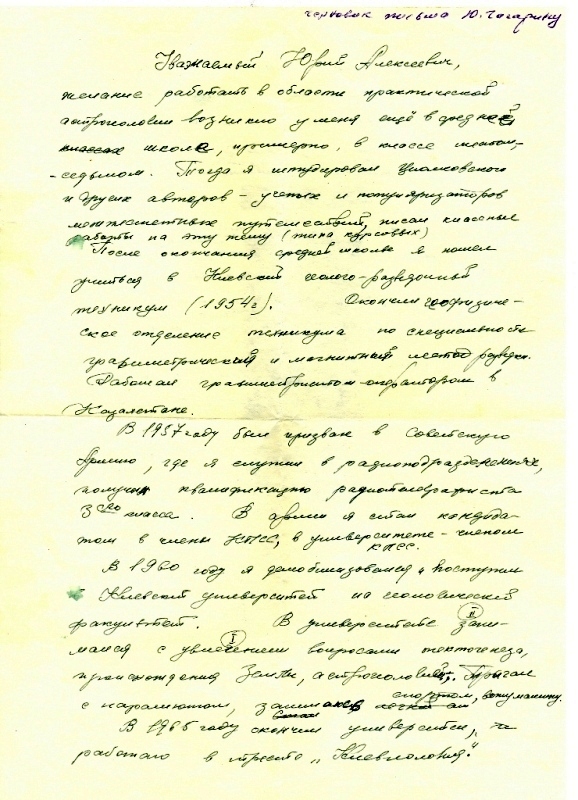 черновик письма Ю. Гагарину
Уважаемый Юрий Алексеевич,
желание работать в области практической
астрогеологии возникло у меня ещё в средней
классах школе, примерно, в классе шестом-
-седьмом. Тогда я штудировал Циолковского
и других авторов - ученых и популяризаторов
межпланетных путешествий, писал классные
работы на эту тему (типа курсовых)
После окончания средней школы я пошел
учиться в Киевский геолого-разведочный
техникум (1954г). Окончил геофизиче-
ское отделение техникума по специальность
гравиметрический и магнитный метод разведки.
Работал гравиметристом-оператором в
Казахстане.
В 1957 году был призван в Советскую
Армию, где я служил в радиоподразделениях,
получил квалификацию радиотелеграфиста
3его класса. В армии я стал кандида-
том в члены КПСС, в университете - членом
КПСС.
В 1960 году я демобилизовался и поступил
Киевский университет на геологический
факультет. В университете II зани-
мался с увлечением I вопросами тектогенеза,
происхождения Земли, астрогеологией. Прыгал
с парашютом, занимался
спортом, вожу машину.
В 1966 году окончил университет,
работаю в тресте „Киевгеология".